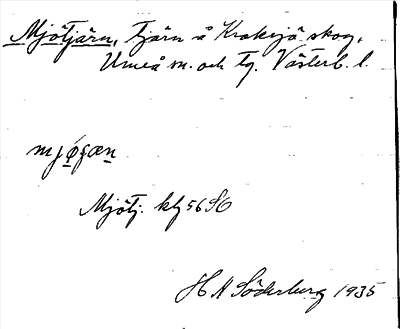 Mjötjärn, Tjärn å Kroksjö skog,
Umeå sn. och tg. Västerb. l.
mjø̣ʃæṇ
Mjötj. kbl 56 SO
H A Söderberg 1935